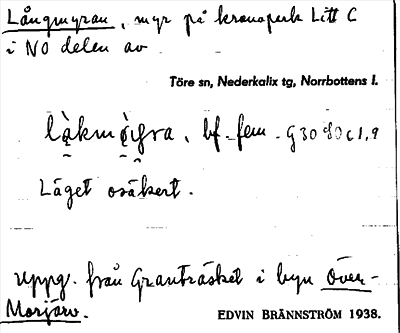 Långmyran, myr på kronopark Litt C
i NO delen av
Töre sn, Nederkalix tg, Norrbottens l.
bf. fem.
Läget osäkert.
Uppg. från Granträsket i byn Över-
Morjärv.
EDVIN BRÄNNSTRÖM 1938.